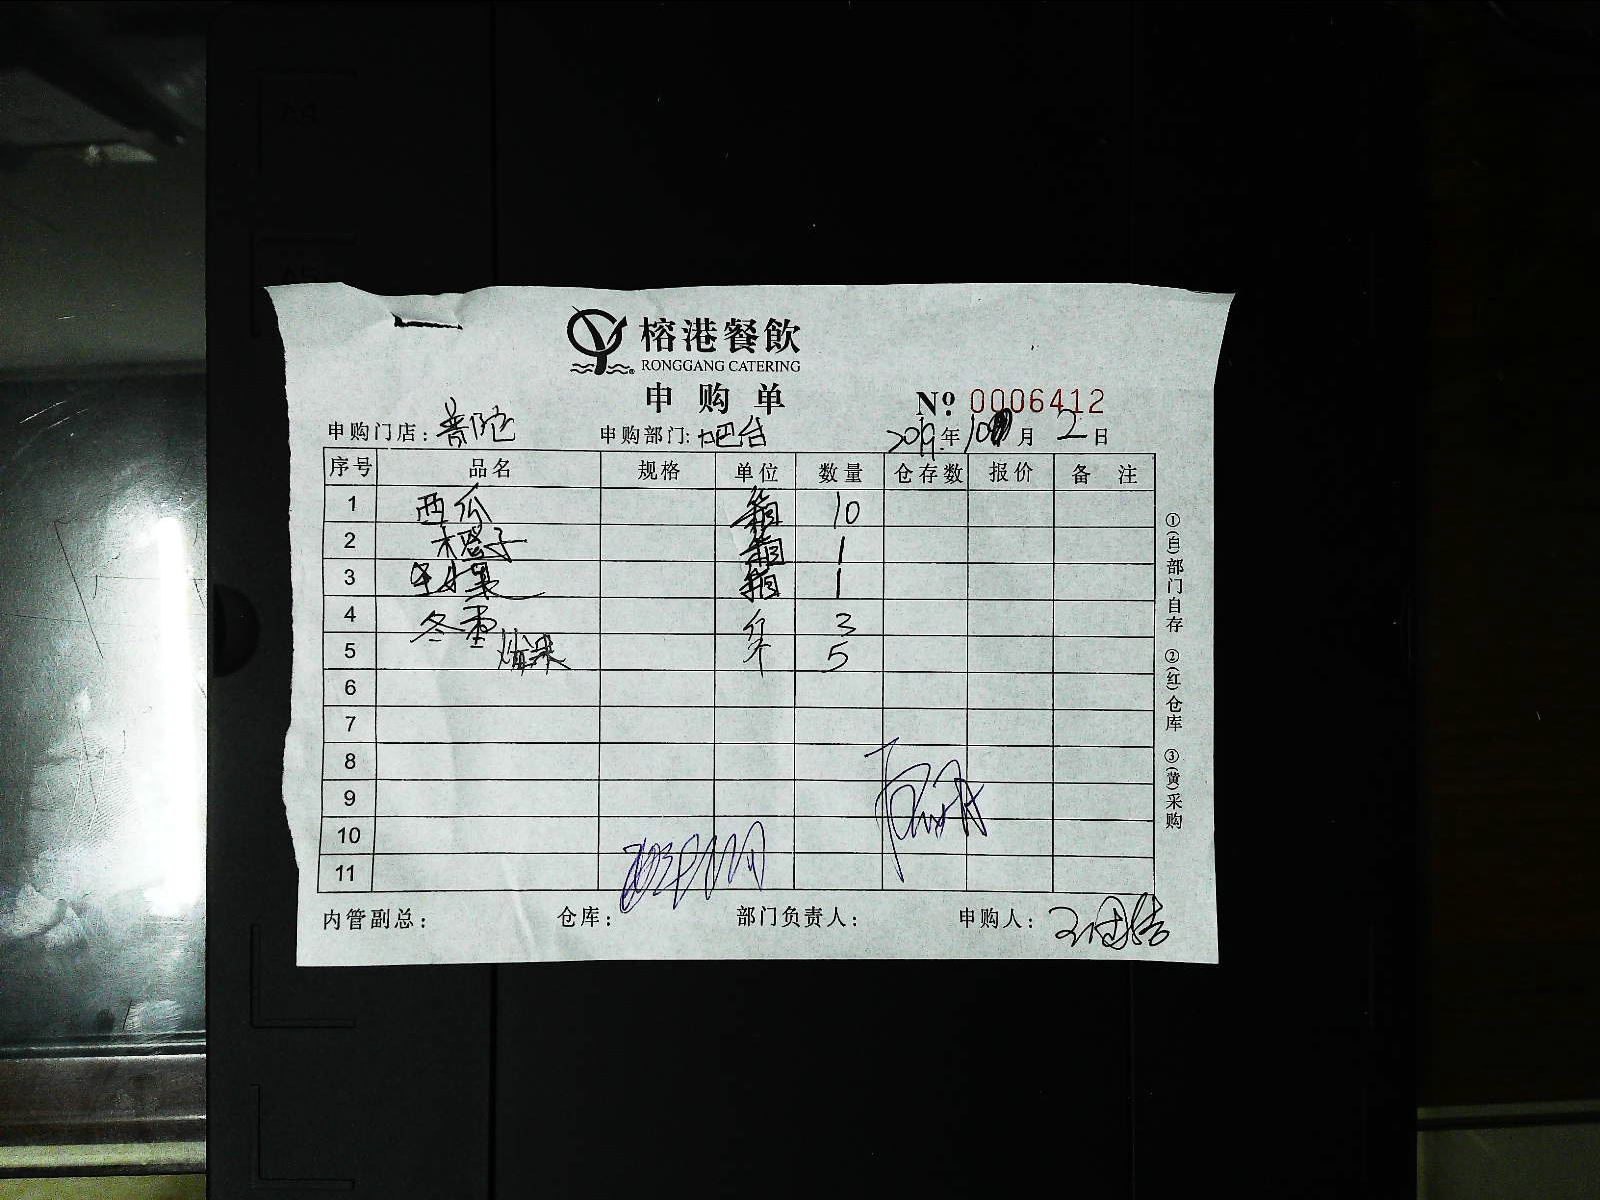 A4
A5
榕港餐飲
RONGGANG CATERING
申购单
№: 0006412
申购门店: 普陀 申购部门: 吧台 2019年10月2日
序号 品名 规格 单位 数量 仓存数 报价 备注
1 西瓜 箱 10
2 橙子 箱 1
3 箱 1
4 冬枣 斤 3
5 个 5
6
7
8
9
10
11
内管副总: 仓库: 部门负责人: 申购人:
①(白)部门自存 ②(红)仓库 ③(黄)采购